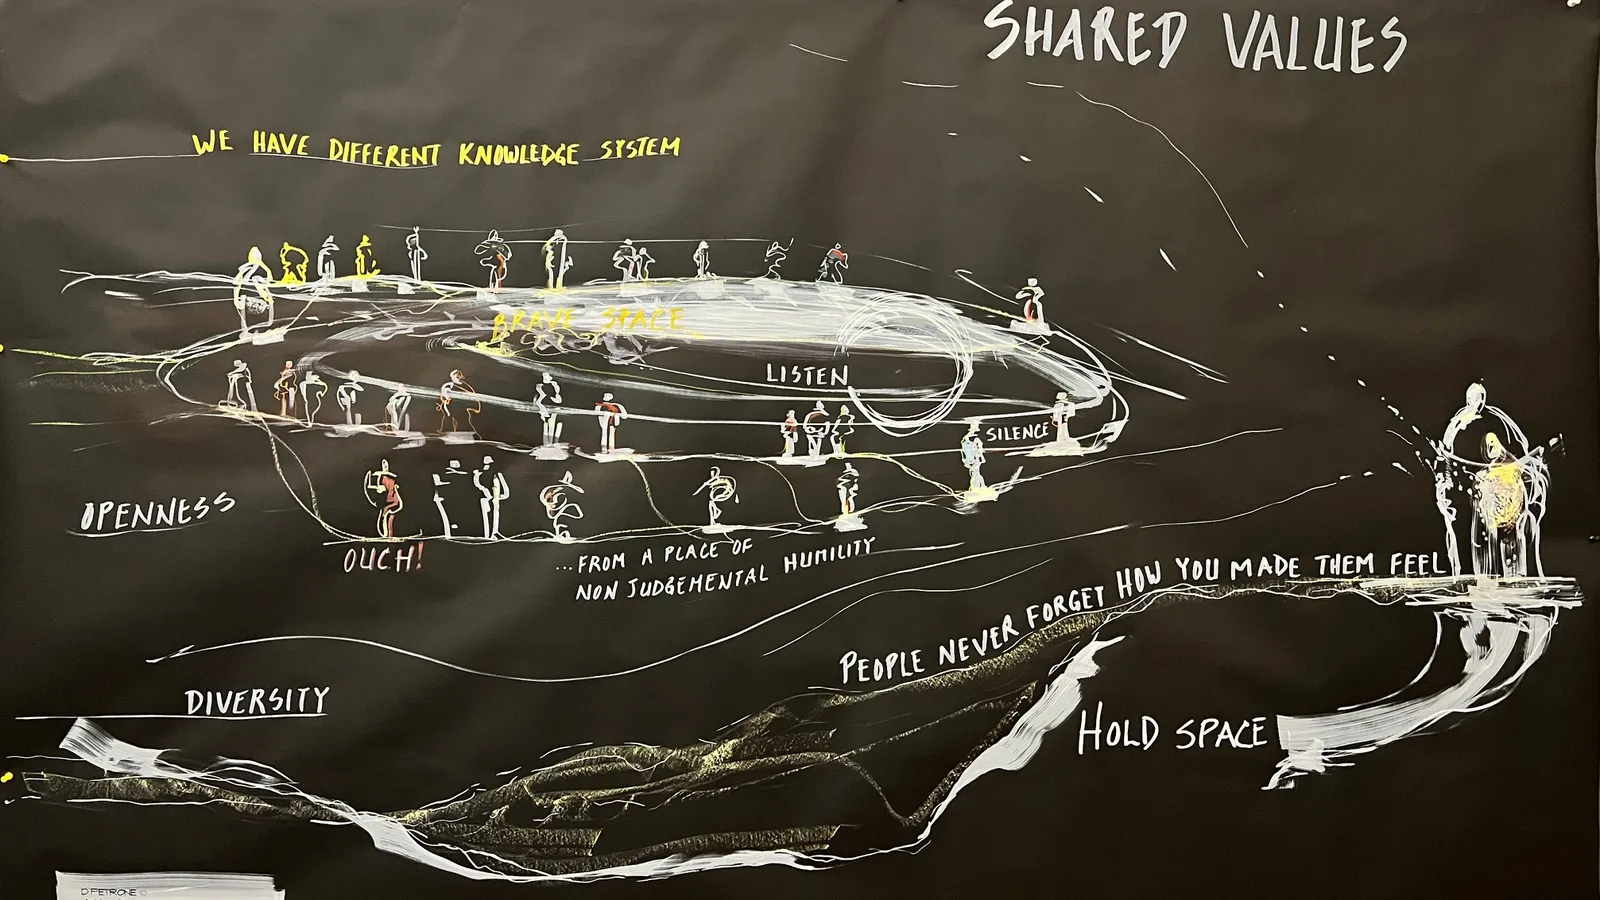 SHARED VALUES
WE HAVE DIFFERENT KNOWLEDGE SYSTEM
BRAVE SPACE
LISTEN
SILENCE
OPENNESS
OUCH!
...FROM A PLACE OF
NON JUDGEMENTAL HUMILITY
PEOPLE NEVER FORGET HOW YOU MADE THEM FEEL
DIVERSITY
HOLD SPACE
D PETRONE